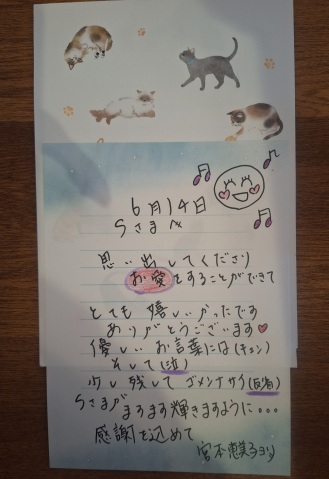 6月14日
Sさまへ
思い出してくださり
お愛をすることができて
とても嬉しかったです
ありがとうございます♥
優しいお言葉には(キュン)
そして(泣)
少し残してゴメンナサイ(反省)
Sさまが
ますます輝きますように…
感謝を込めて
宮本恵美子ヨリ